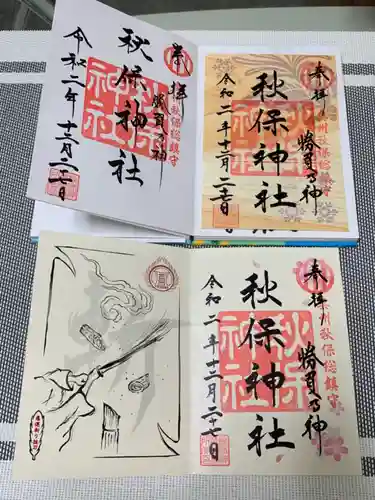 奉拝
秋保総鎮守
勝負の神
秋保神社
秋保神社
令和二年十二月二十七日
奉拝
州秋保総鎮守
勝負の神
秋保神社
令和二年十二月二十七日
奉拝
州秋保総鎮守
勝負の神
秋保神社
秋保神社
令和二年十二月二十七日